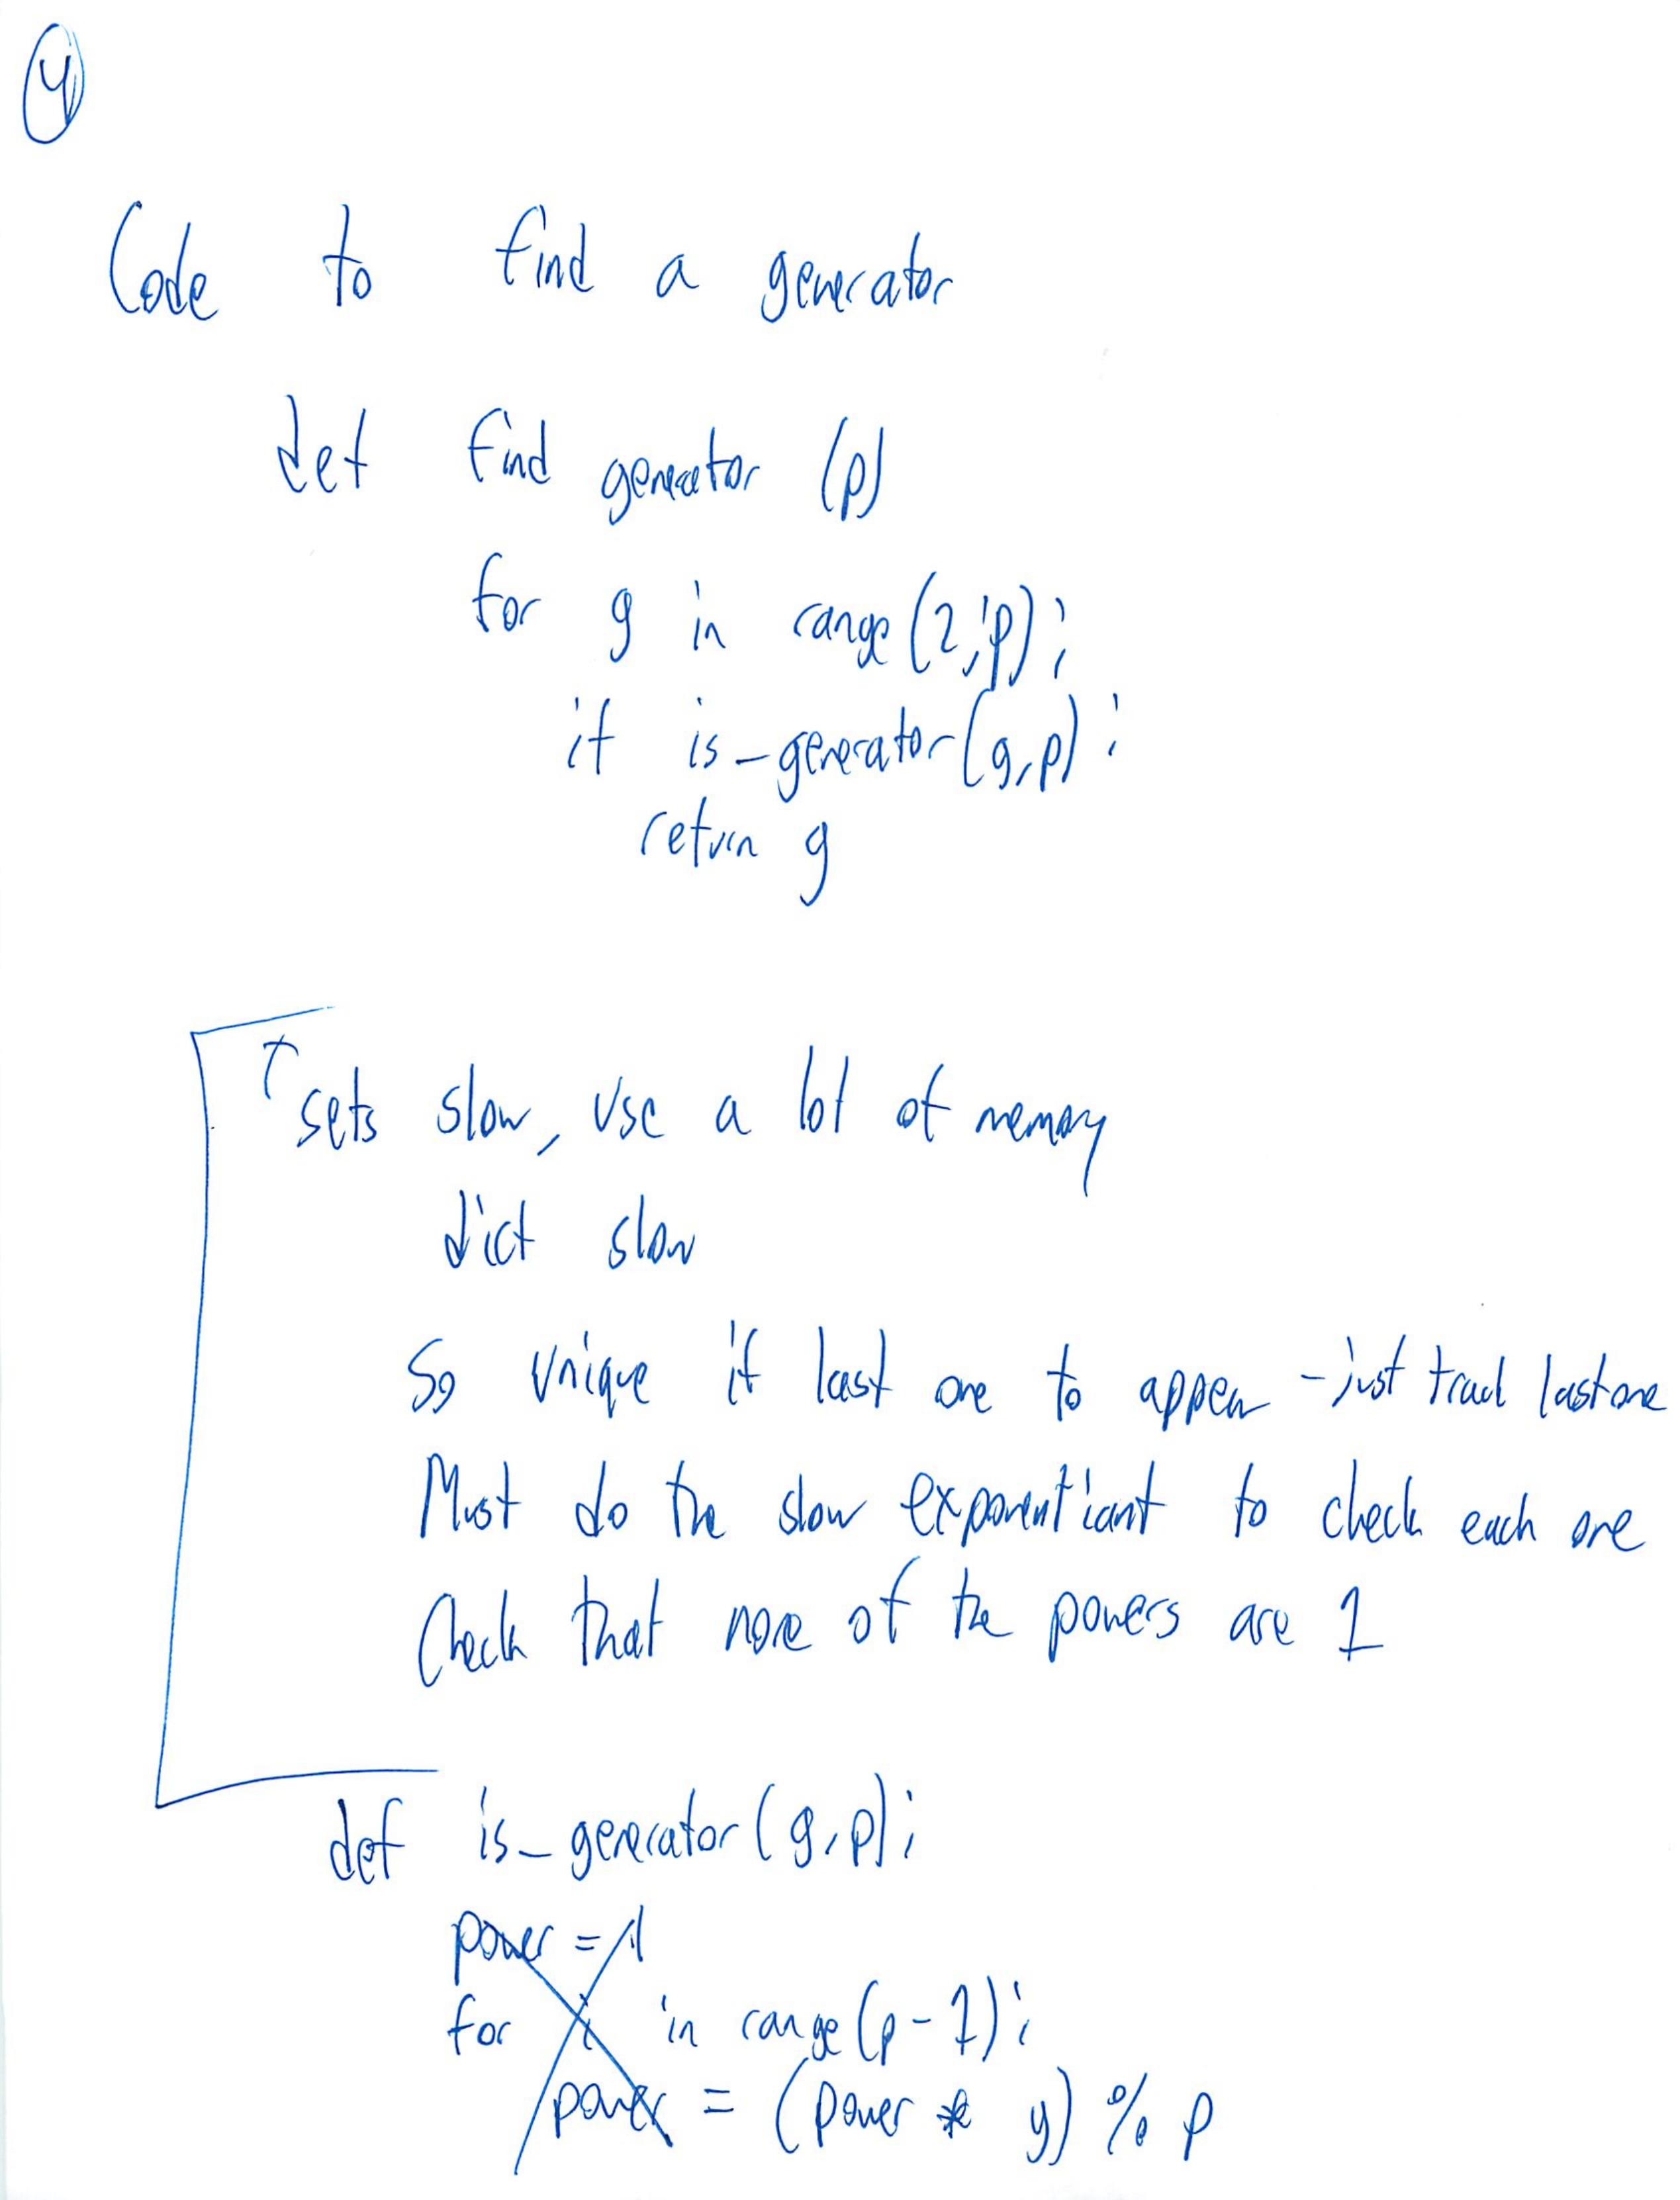 4
Code to find a generator
def find generator (p)
for g in range(2,p):
if is-generator(g,p):
return g
↑ sets slow, use a lot of memory
dict slow
So unique if last one to appear - just track last one
Must do the slow exponentiant to check each one
Check that none of the powers are 1
def is-generator(g,p):
power = 1
for i in range(p-1):
power = (power * g) % p